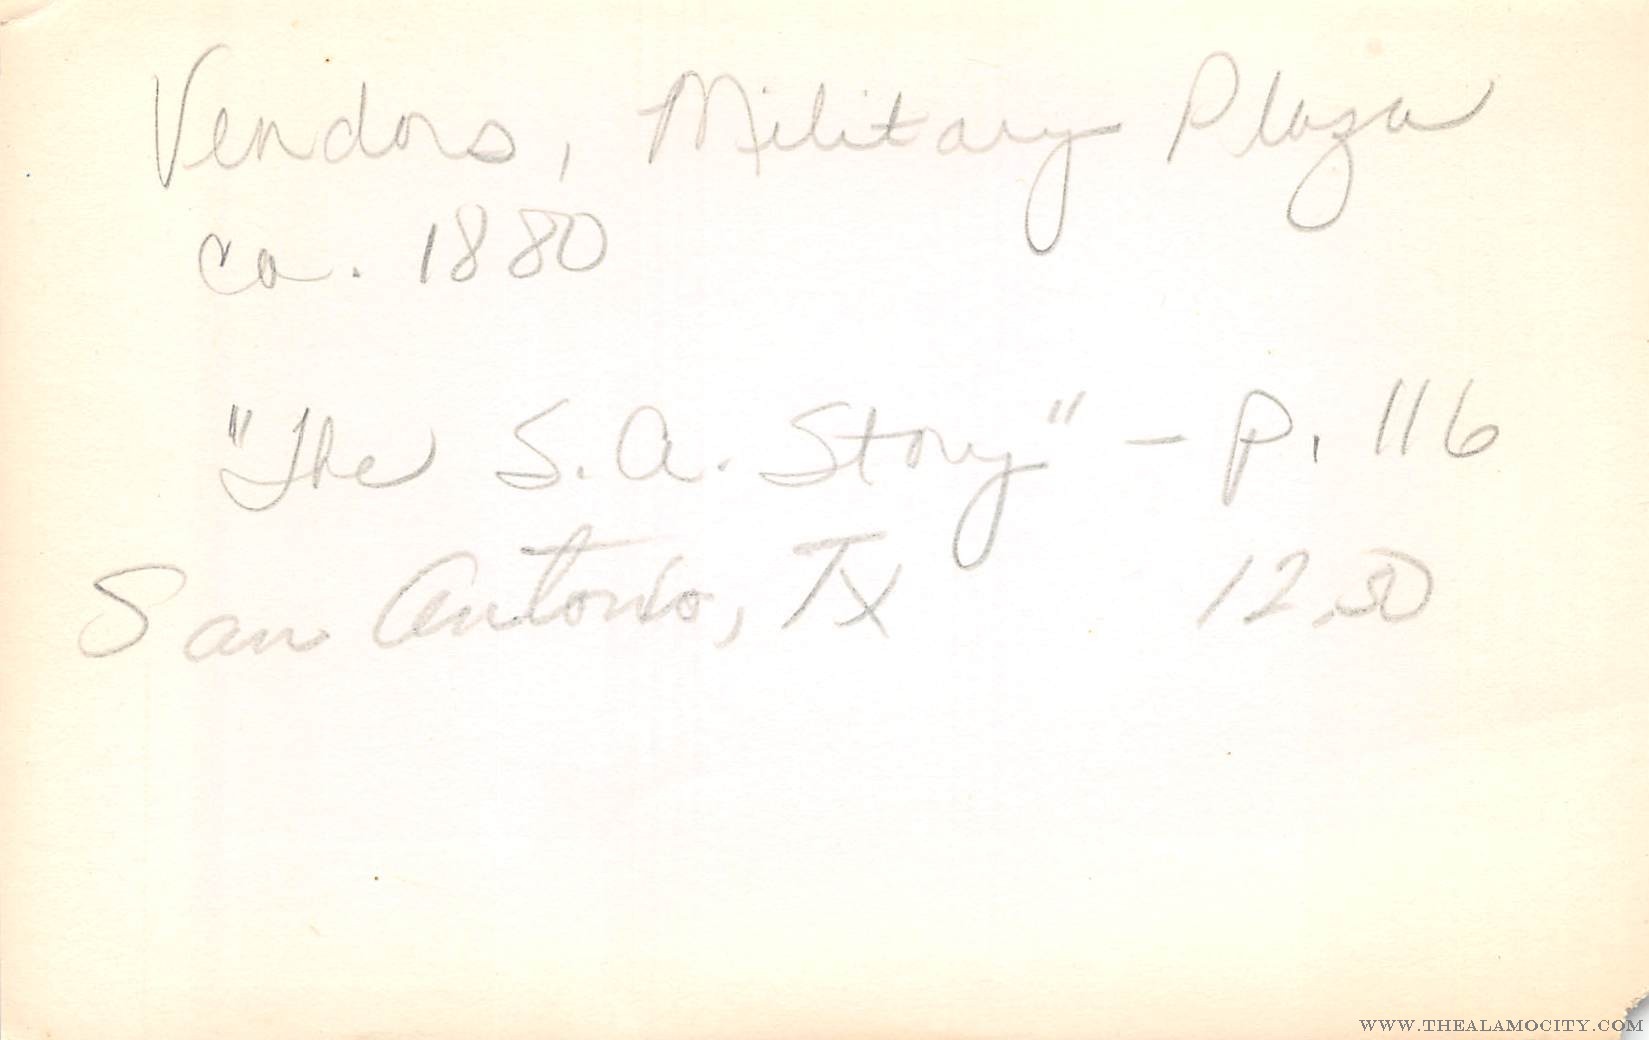 Vendors, Military Plaza
ca. 1880
"The S.A. Story" – p. 116
San Antonio, TX 12.50
WWW.THEALAMOCITY.COM